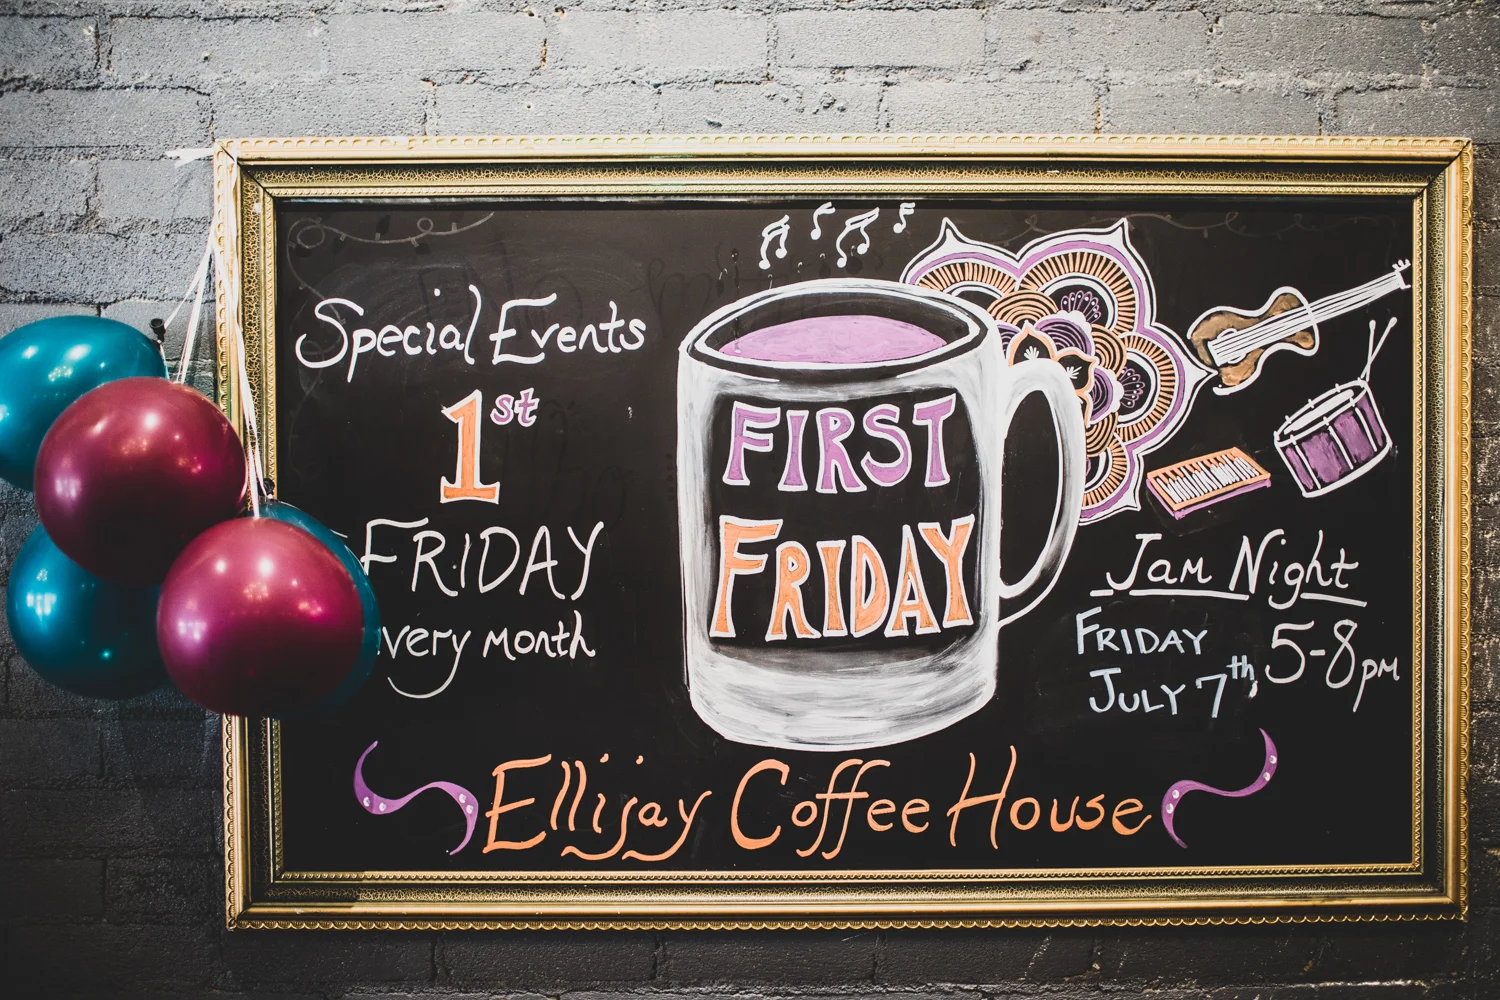 Special Events
1st
FRIDAY
very month
FIRST
FRIDAY
Jam Night
FRIDAY
JULY 7th,
5-8pm
Ellijay Coffee House